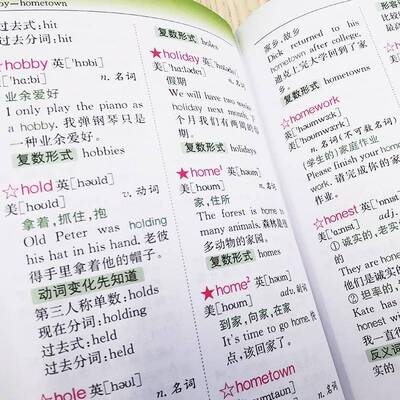 by—hometown
过去式:hit
过去分词:hit
☆hobby 英['hɒbi]
美['hɑːbi] n.名词
业余爱好
I only play the piano as
a hobby. 我弹钢琴只是
一种业余爱好。
复数形式 hobbies
☆hold 英[həʊld]
美[hoʊld] v.动词
拿着,抓住,抱
Old Peter was holding
his hat in his hand. 老彼
得手里拿着他的帽子。
动词变化先知道
第三人称单数:holds
现在分词:holding
过去式:held
过去分词:held
☆hole 英[həʊl]
n.名词
复数形式 holes
★holiday 英['hɒlədeɪ]
美['hɑːlədeɪ] n.名词
假期
We will have two weeks'
holiday next month.
个月我们有两周的假
期。
复数形式 holidays
★home¹ 英[həʊm]
美[hoʊm] n.名词
家,住所
The forest is home to
many animals. 森林是
多动物的家园。
复数形式 homes
★home² 英[həʊm]
美[hoʊm] adv.副词
到家,向家,在家
It's time to go home.
点,该回家了。
☆hometown
家乡,故乡
Dick returned to his
hometown after college.
迪克上完大学回到了家
乡。
复数形式 hometowns
☆homework
英['həʊmwɜːk]
美['hoʊmwɜːk]
n.名词(不可数名词)
(学生的)家庭作业
Please finish your homework.
请完成你的家
作业。
☆honest
美['ɑːnɪst]
① 诚实的,老实
They are honest
他们是诚实的
② 坦率的,
Kate has
honest with
我一直很
反义词